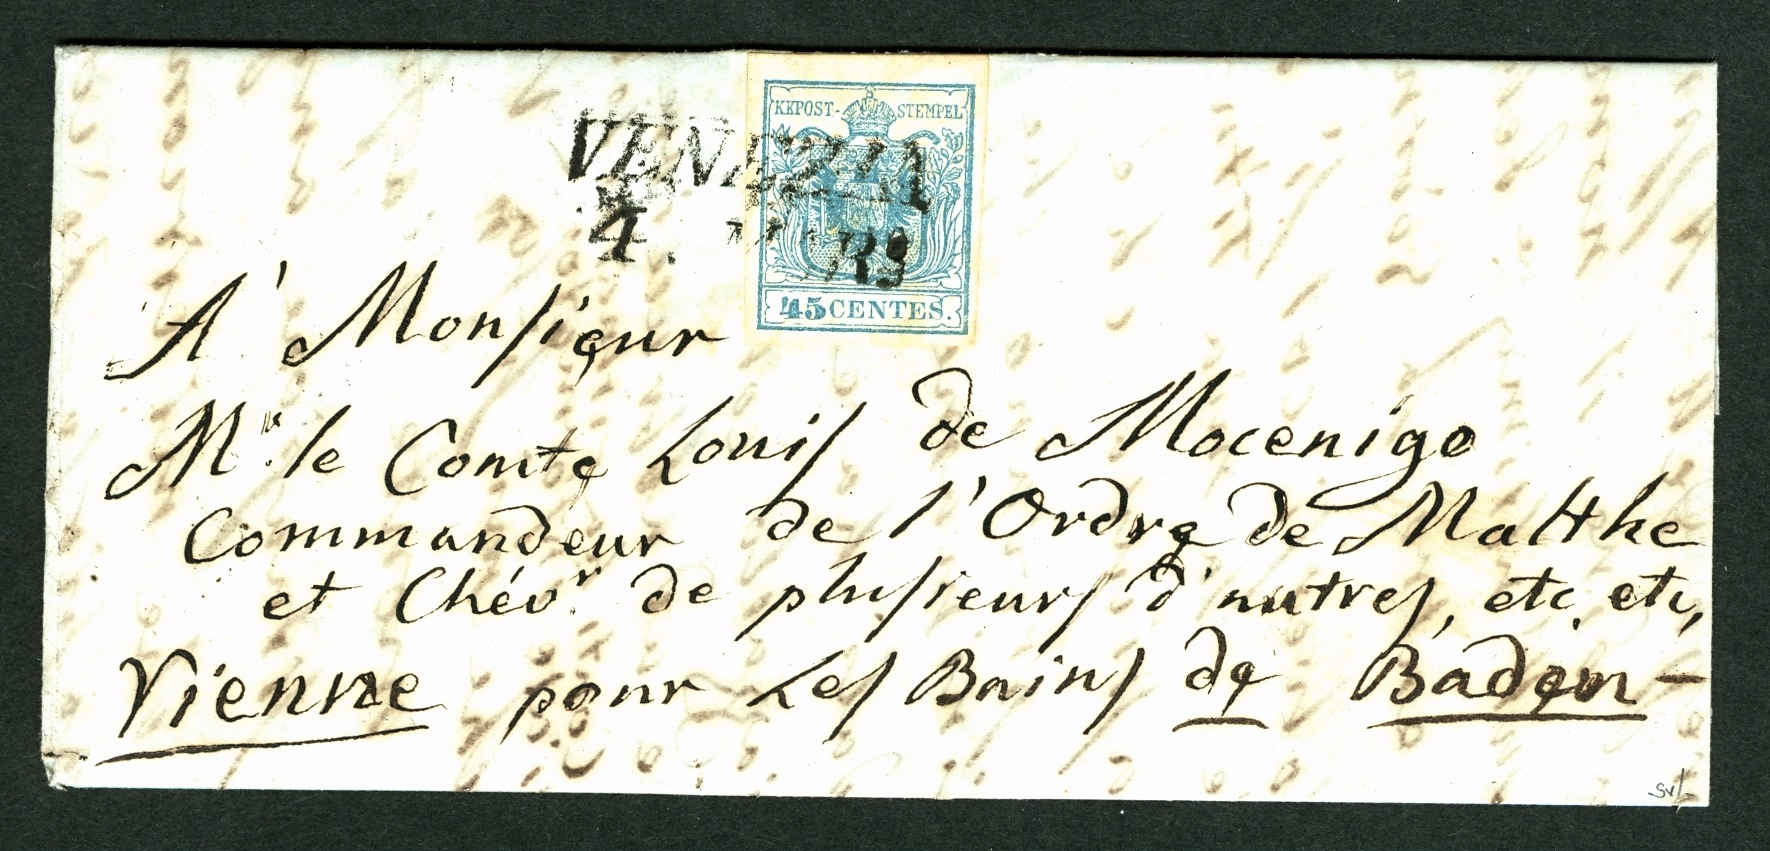 KKPOST- STEMPEL
VENEZIA
4.
45 CENTES.
A' Monsieur
Mr. le Comte Louis de Mocenigo
Commandeur de l'Ordre de Malthe
et Chévr. de plusieurs d'autres, etc. etc,
Vienne pour Les Bains de Baden -